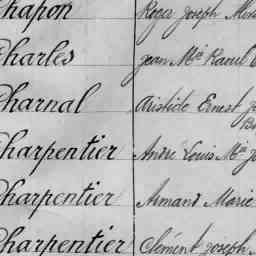 Chapon Roger Joseph
Charles Jean M^ie Raoul
Charnal Aristide Ernest
Charpentier André Louis M^ie
Charpentier Armand Marie
Charpentier Clément Joseph